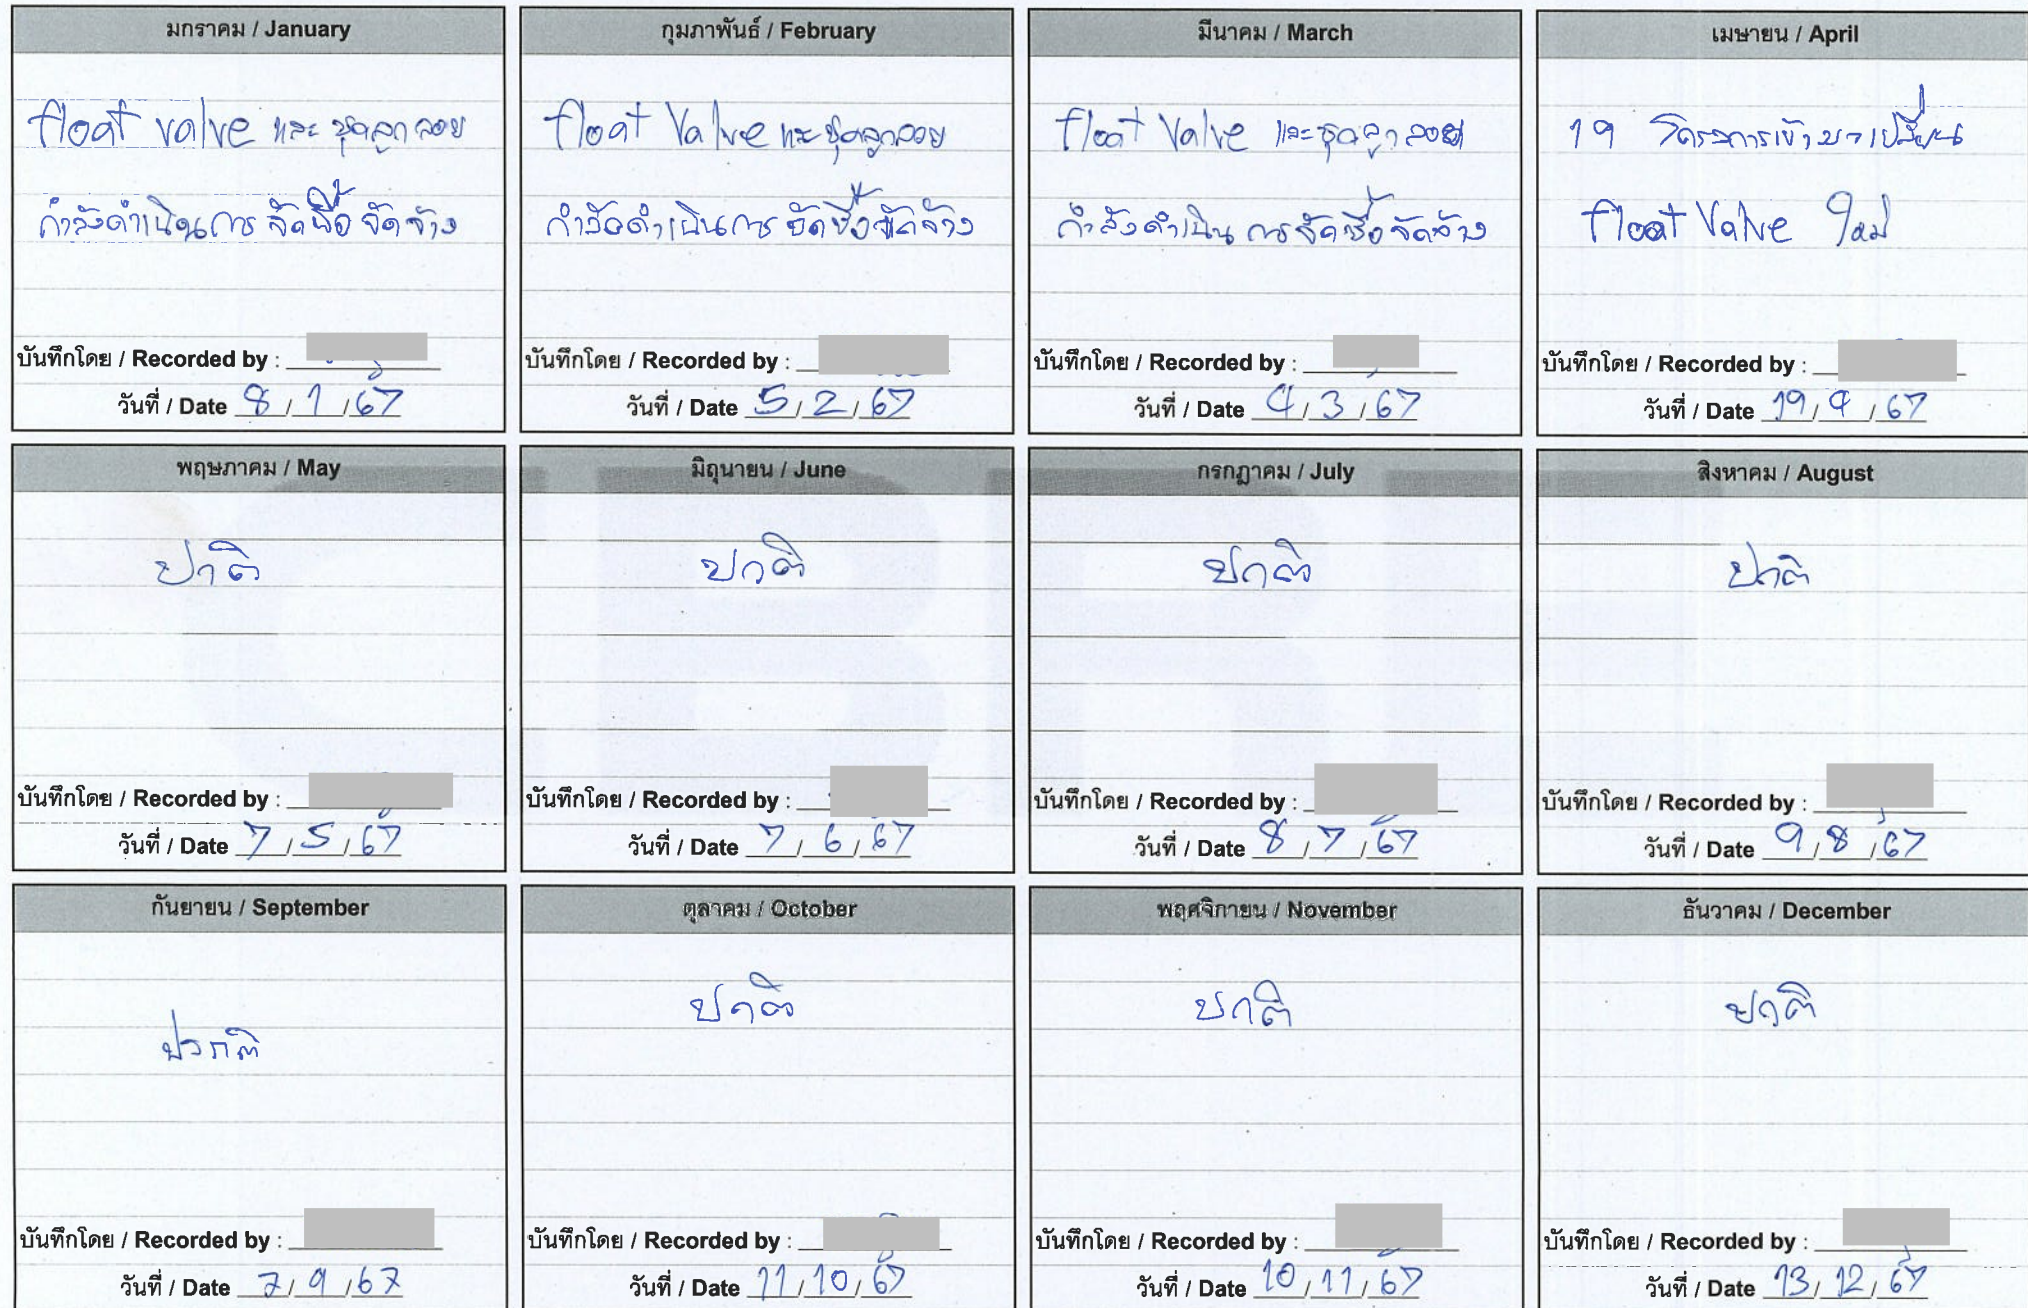 มกราคม / January
float valve และ ชุดลูกลอย
กำลังดำเนินการ จัดซื้อ จัดจ้าง
บันทึกโดย / Recorded by :
วันที่ / Date 8 / 1 / 67
กุมภาพันธ์ / February
float Valve และชุดลูกลอย
กำลังดำเนินการ จัดซื้อจัดจ้าง
บันทึกโดย / Recorded by :
วันที่ / Date 5 / 2 / 67
มีนาคม / March
float Valve และชุดลูกลอย
กำลังดำเนินการจัดซื้อจัดจ้าง
บันทึกโดย / Recorded by :
วันที่ / Date 4 / 3 / 67
เมษายน / April
19 โครงการเข้ามาเปลี่ยน
float Valve ใหม่
บันทึกโดย / Recorded by :
วันที่ / Date 19 / 4 / 67
พฤษภาคม / May
ปกติ
บันทึกโดย / Recorded by :
วันที่ / Date 7 / 5 / 67
มิถุนายน / June
ปกติ
บันทึกโดย / Recorded by :
วันที่ / Date 7 / 6 / 67
กรกฎาคม / July
ปกติ
บันทึกโดย / Recorded by :
วันที่ / Date 8 / 7 / 67
สิงหาคม / August
ปกติ
บันทึกโดย / Recorded by :
วันที่ / Date 9 / 8 / 67
กันยายน / September
ปรกติ
บันทึกโดย / Recorded by :
วันที่ / Date 7 / 9 / 67
ตุลาคม / October
ปกติ
บันทึกโดย / Recorded by :
วันที่ / Date 11 / 10 / 67
พฤศจิกายน / November
ปกติ
บันทึกโดย / Recorded by :
วันที่ / Date 10 / 11 / 67
ธันวาคม / December
ปกติ
บันทึกโดย / Recorded by :
วันที่ / Date 13 / 12 / 67